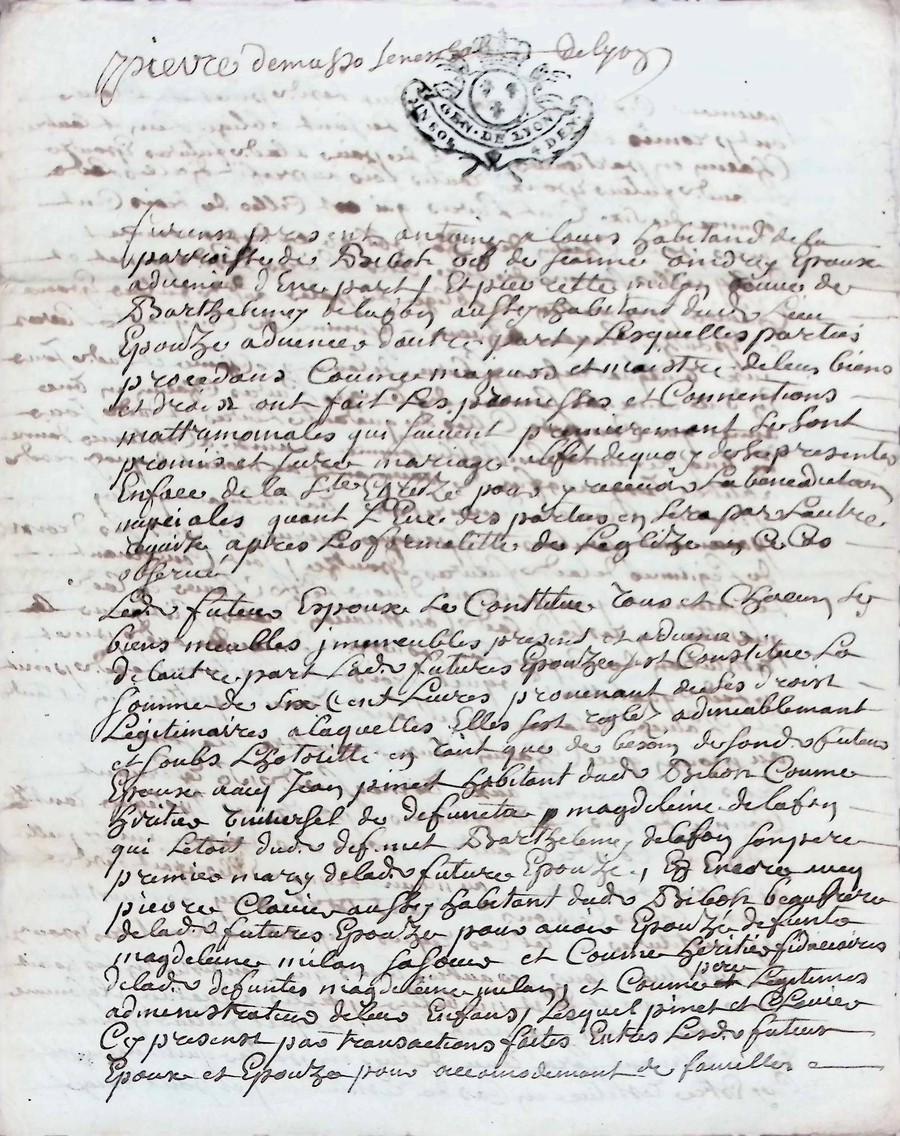 pierre demasso senechal de Lyon
GEN. DE LYON
UN SOL 4 DEN.
furent present antoine alouis habitand de la
parroisse de Bibost vef de jeanne Epoux
advenir d'Une part, Et pierrette milan veuve de
Barthelemy delafon aussy habitant dud. Lieu
Epouze advenire dautre part, Lesquelles parties
procedans Comme majeurs et maistre de leur biens
et droist ont fait Les promesses et Conventions
mattrimonialles qui suivent premierement se sont
promis et juré mariage a lefet de quoy se presenter
Enface de la Ste Eglize pour y recevoir La benediction
nupcialles quant L'Une des parties en sera par Lautre
requise apres Les formalitte de Leglize en Ce Cas
observé
Led. futeur Espoux Se Constitue Tous et Chacun Ses
biens meubles jmmeubles present et advenir
de lautre part Lad. future Epouze se Constitue La
somme de six Cent Livres provenant de Ses droist
Légitimaires alaquelles Elles sest reglez admiablemant
et soubs Lhotoritte en Tant que de besoin de sond. futeur
Epoux avec Jean pinet habitant dud. Bibost Comme
heritier Universel de defuncte magdeleine delafon
qui Letoit dud. defunct Barthelemy delafon son pere
premier mary de lad. future Epouze, Et Encore avec
pierre Clavier aussy habitant dud. Bibost beaufrere
de lad. future Epouze pour avoir Epouzé defunte
magdeleine milan sa soeur et Comme heritier fiduciaires
de lad. defuntes magdeleine milan, et Comme pere et Legitimes
administrateur de leur Enfans, Lesquel pinet et Clavier
Cy present par transactions faites Entres Lesd. futeur
Epoux et Epouze pour accomodemant de familles